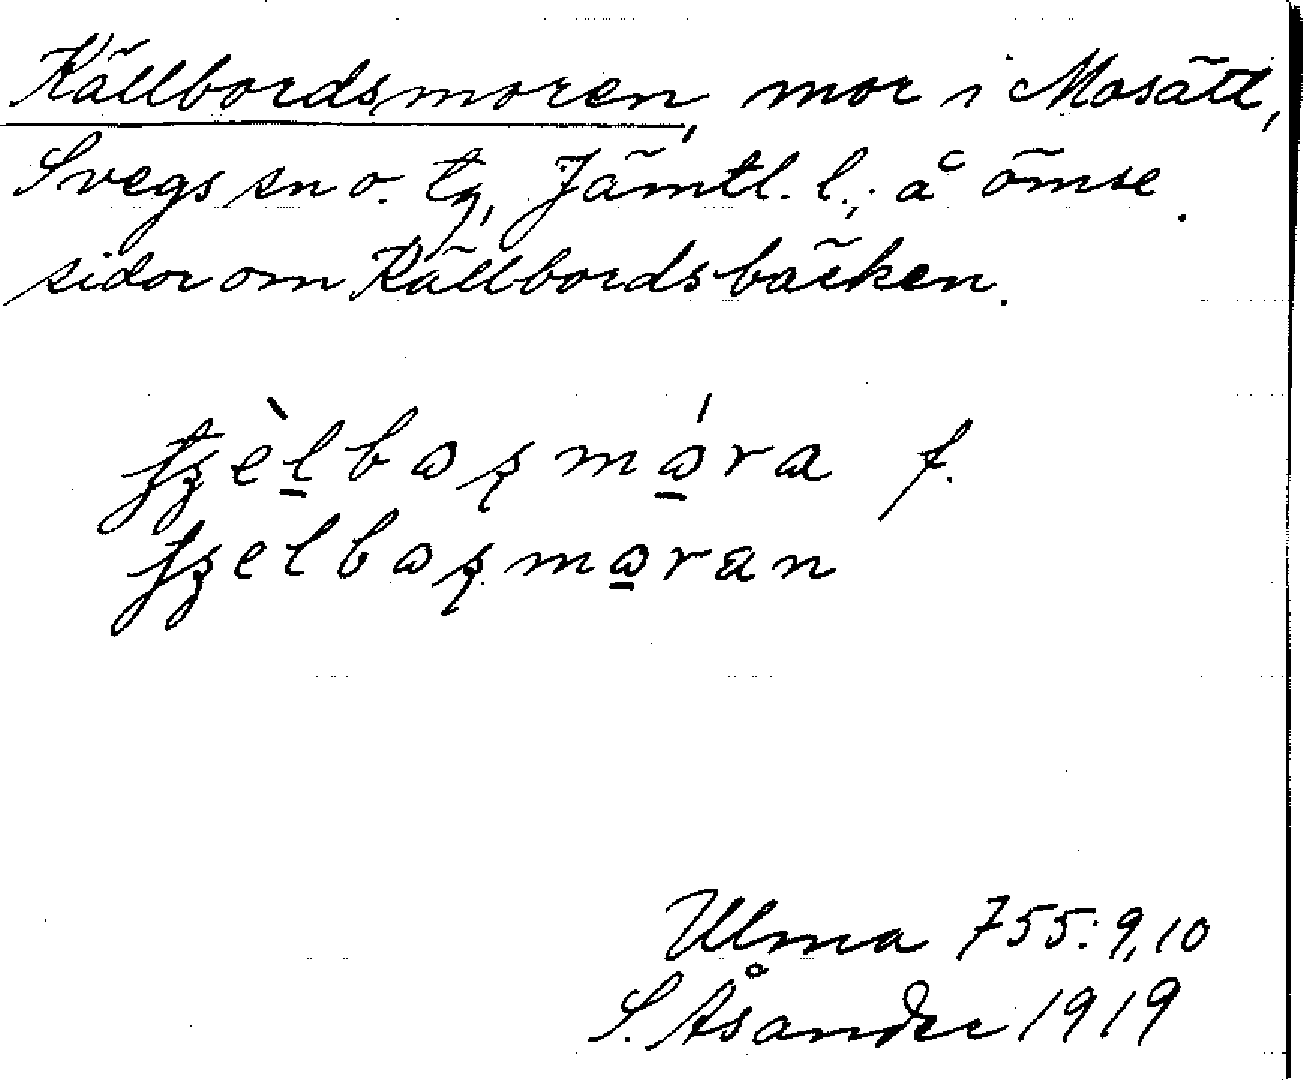 Källbordsmoren, mor i Mosätt,
Svegs sn o. tg, Jämtl. l.; å ömse
sidor om Källbordsbäcken.
f.
Ulma 755:9,10
S. Åsander 1919